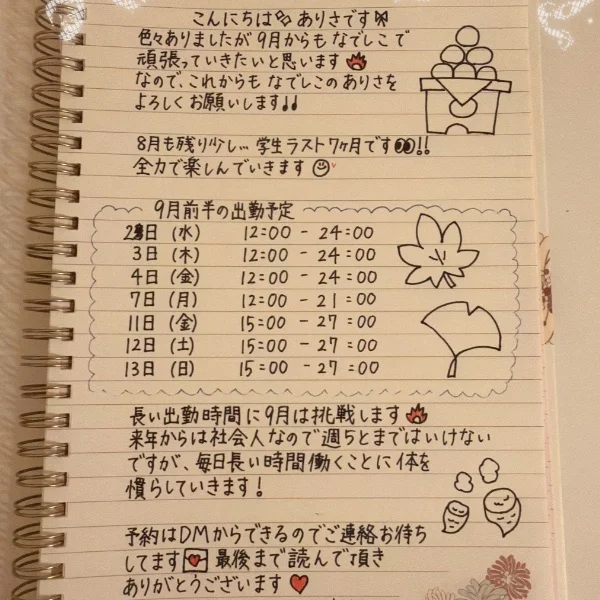 こんにちは🎀ありさです🎀
色々ありましたが9月からもなでしこで
頑張っていきたいと思います🔥
なので、これからもなでしこのありさを
よろしくお願いします♩♩
8月も残り少し… 学生ラスト7ヶ月です👀!!
全力で楽しんでいきます☺♥
9月前半の出勤予定
2日 (水) 12:00 - 24:00
3日 (木) 12:00 - 24:00
4日 (金) 12:00 - 24:00
7日 (月) 12:00 - 21:00
11日 (金) 15:00 - 27:00
12日 (土) 15:00 - 27:00
13日 (日) 15:00 - 27:00
長い出勤時間に9月は挑戦します🔥
来年からは社会人なので週5とまではいけない
ですが、毎日長い時間働くことに体を
慣らしていきます!
予約はDMからできるのでご連絡お待ち
してます💌 最後まで読んで頂き
ありがとうございます♥